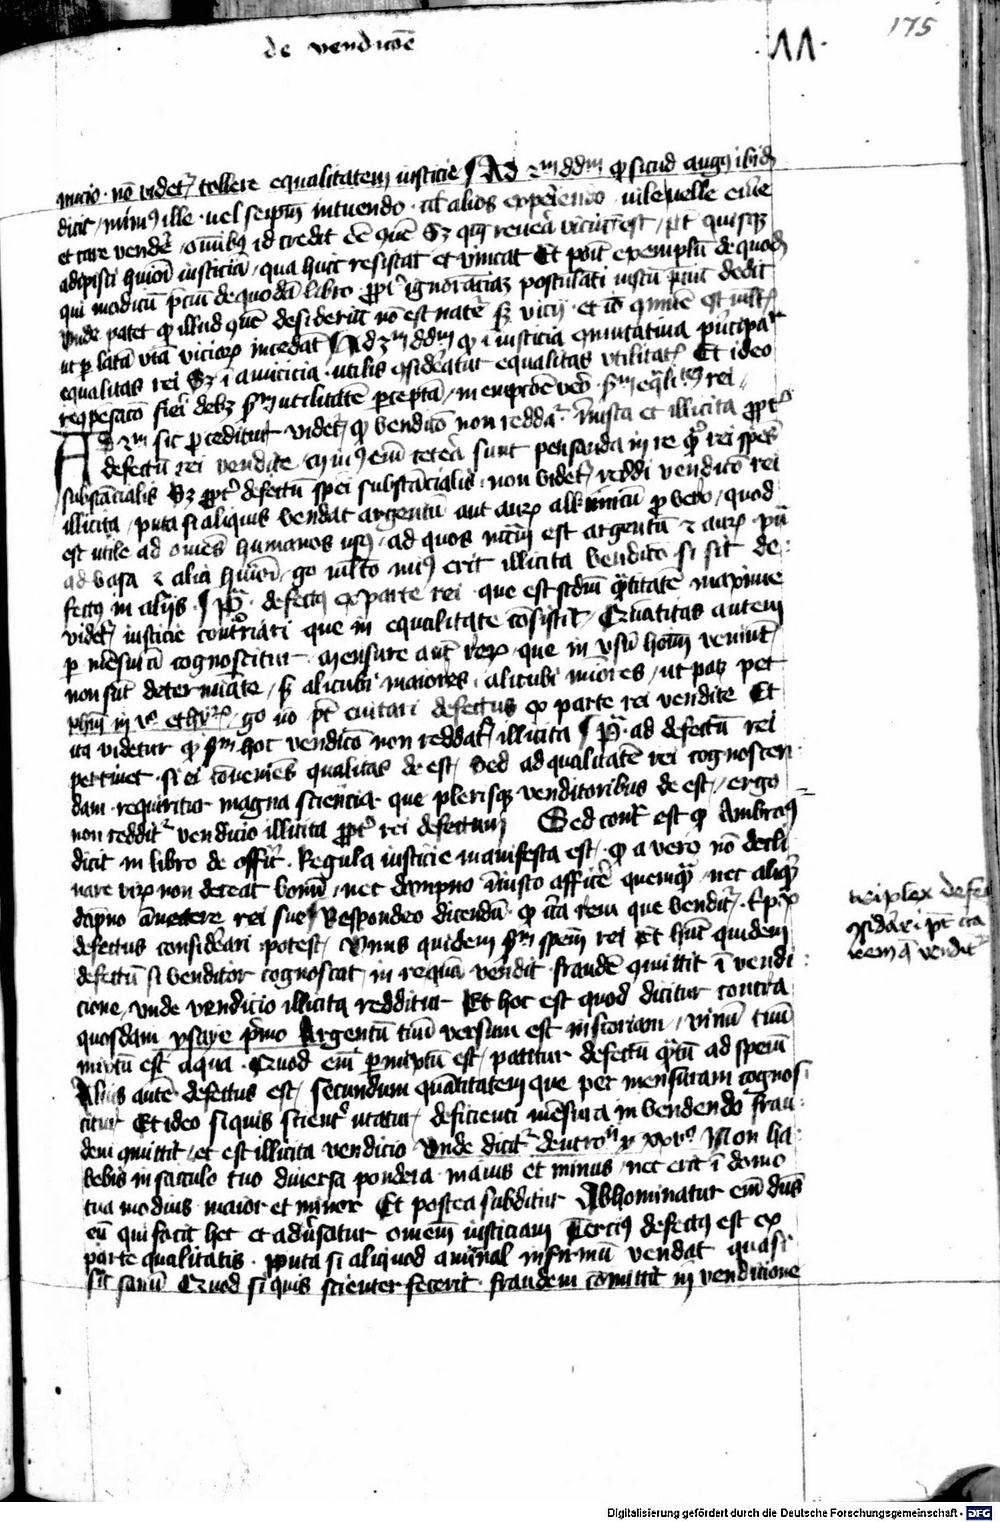 de vendicōe
11
175
nucio · nō videtr tollere equalitatem iusticie ¶ Ad 2m ddm qp sicud augus ibidem
dicit / mimus ille · vel seipm intuendo · ul alios experiendo · vile velle emere
et care vendere / omnibus id credit esse comune Sz qz revera vicium est / pt quisqz
adipisci huiusmodi iusticiā / qua huic resistat et vincat Et ponit exemplū de quodam
qui modicū pcium de quodā libro ppter ignoranciaz postulati iustū pcium dedit
Unde patet qp illud comune desiderium nō est nature sz vicii · et ideo comune est multis
ut per latam viā viciorum incedat ¶ Ad 3m ddm qp ī iusticia comutativa principaliter
equalitas rei Sz ī amicicia · utilis consideratur equalitas utilitatis Et ideo
recompensacio fieri debz sm utilitatē perceptā / in empcione vero sm equalitatem rei
Ad 2m sic proceditur videtur qp vendicio non reddatur iniusta et illicita propter
defectū rei vendite / minus enim cetera sunt pensanda in re quam rei species
substancialis Sz propter defectū spei substancialis · non videtur reddi vendicio rei
illicita / puta si aliquis vendat argentū aut aurum alkimicū pro vero / quod
est utile ad omnes humanos usus · ad quos necessarium est argentū et aurum puta
ad vasa et alia huiusmodi / go multo minus erit illicita vendicio si sit de-
fectus in aliis · ¶ Preterea · defectus ex parte rei · que est secundum quantitatē maxime
videtur iusticie contrariari que in equalitate consistit / Quantitas autem
per mensurā cognoscitur · mensure autem rerum / que in usum hominum veniunt /
non sunt determinate / sz alicubi maiores · alicubi minores / ut patz per
philosophum in vo ethycorum / go nō potest evitari defectus ex parte rei vendite Et
ita videtur qp sm hoc vendicio non reddatur illicita ¶ Preterea · ad defectū rei
pertinet · si ei conveniens qualitas de est / Sed ad qualitatē rei cognoscen-
dam · requiritur magna sciencia · que plerisqz venditoribus de est / ergo
non redditur vendicio illicita propter rei defectum Sed contra est qp Ambrosius
dicit in libro de officiis · Regula iusticie manifesta est · qp a vero nō decli
nare virum non deceat bonum / nec dampno iniusto afficere quemquam / nec aliquid
dampno annectere rei sue ¶ Respondeo dicendū · qp circa rem que venditur · triplex
defectus considerari potest / Unus quidem sm speciem rei Et hunc quidem
defectū si venditor cognoscat / in re quam vendit · fraudē committit ī vendi
cione / unde vendicio illicita redditur Et hoc est quod dicitur contra
quosdam ysaye primo Argentū tuum versum est in scoriam / vinū tuum
mixtū est aqua · Quod enim permixtū est / patitur defectū quantum ad speciem
Alius autē defectus est / secundum quantitatem que per mensuram cognos-
citur Et ideo si quis scienter utatur / deficienti mensura in vendendo frau-
dem committit / et est illicita vendicio Unde dicitur deutro° xxv° Non ha-
bebis in sacculo tuo diversa pondera · maius et minus / nec erit ī domo
tua modius maior et minor Et postea subditur Abhominatur enim dominus
eum qui facit hec et adversatur omnem iusticiam Tercius defectus est ex
parte qualitatis · puta si aliquod animal infirmum vendat quasi
sit sanum Quod si quis scienter fecerit · fraudem committit in vendicione
triplex defec
considerari potest circa
rem que venditur
Digitalisierung gefördert durch die Deutsche Forschungsgemeinschaft - DFG